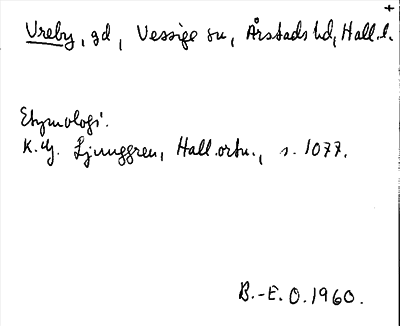 +
Vreby, gd, Vessige sn, Årstads hd, Hall. l.
Etymologi.
K.G. Ljunggren, Hall. ortn., s. 1077.
B.-E. O. 1960.